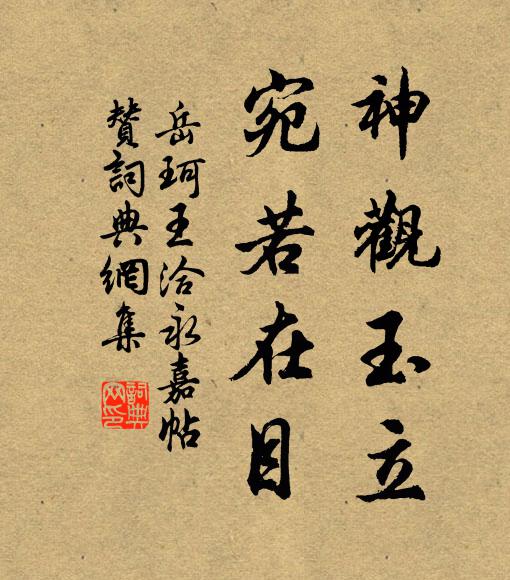 神觀玉立
宛若在目
岳珂王洽永嘉帖
贊詞典網集
詞典網印